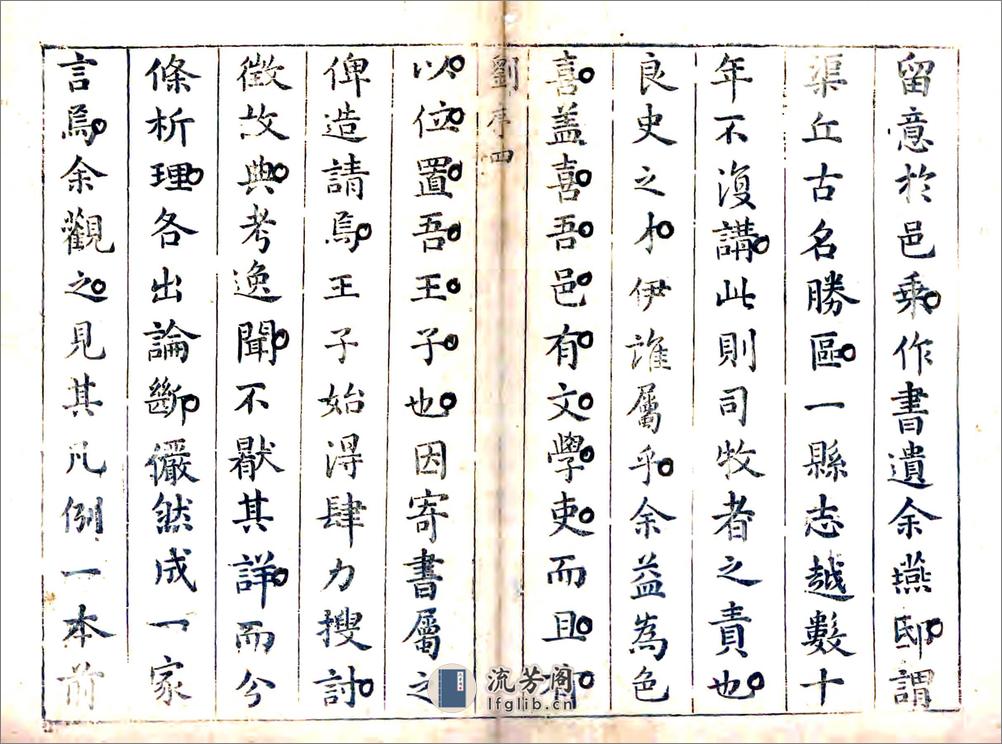 留意於邑乗作書遺余燕邸謂
渠丘古名勝區一縣志越數十
年不復講此則司牧者之責也
良史之才伊誰屬乎余益為色
喜蓋喜吾邑有文學吏而且
劉序四
以位置吾王子也因寄書屬之
俾造請焉王子始得肆力搜討
徵故典考逸聞不厭其詳而分
條析理各出論斷儼然成一家
言焉余觀之見其凡例一本前
流芳阁
lfglib.cn